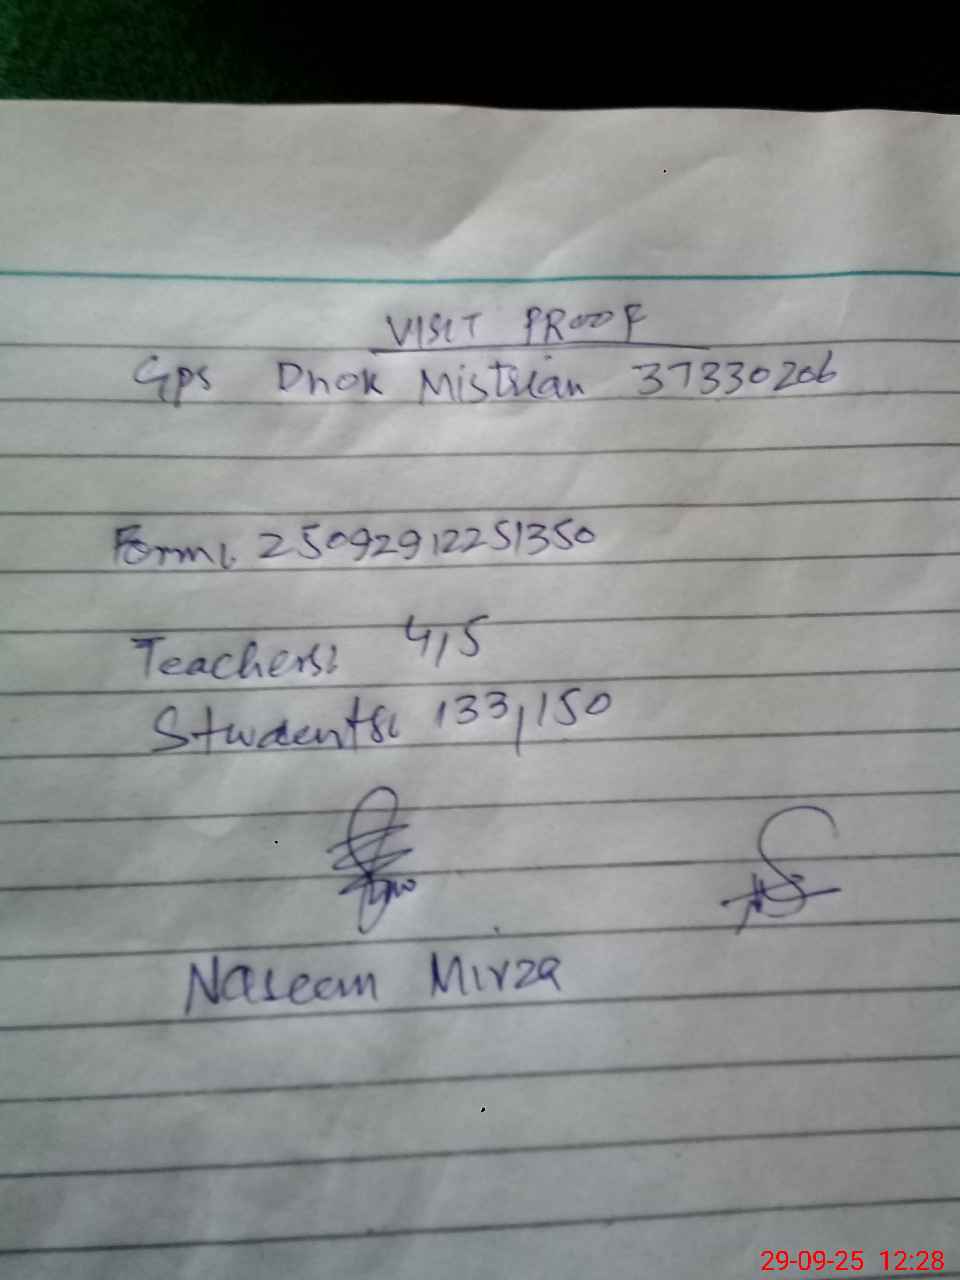 VISIT PROOF
Gps Dhok Mistrian 37330206
Form: 25092912251350
Teachers: 4,5
Students: 133,150
Naseem Mirza
29-09-25 12:28